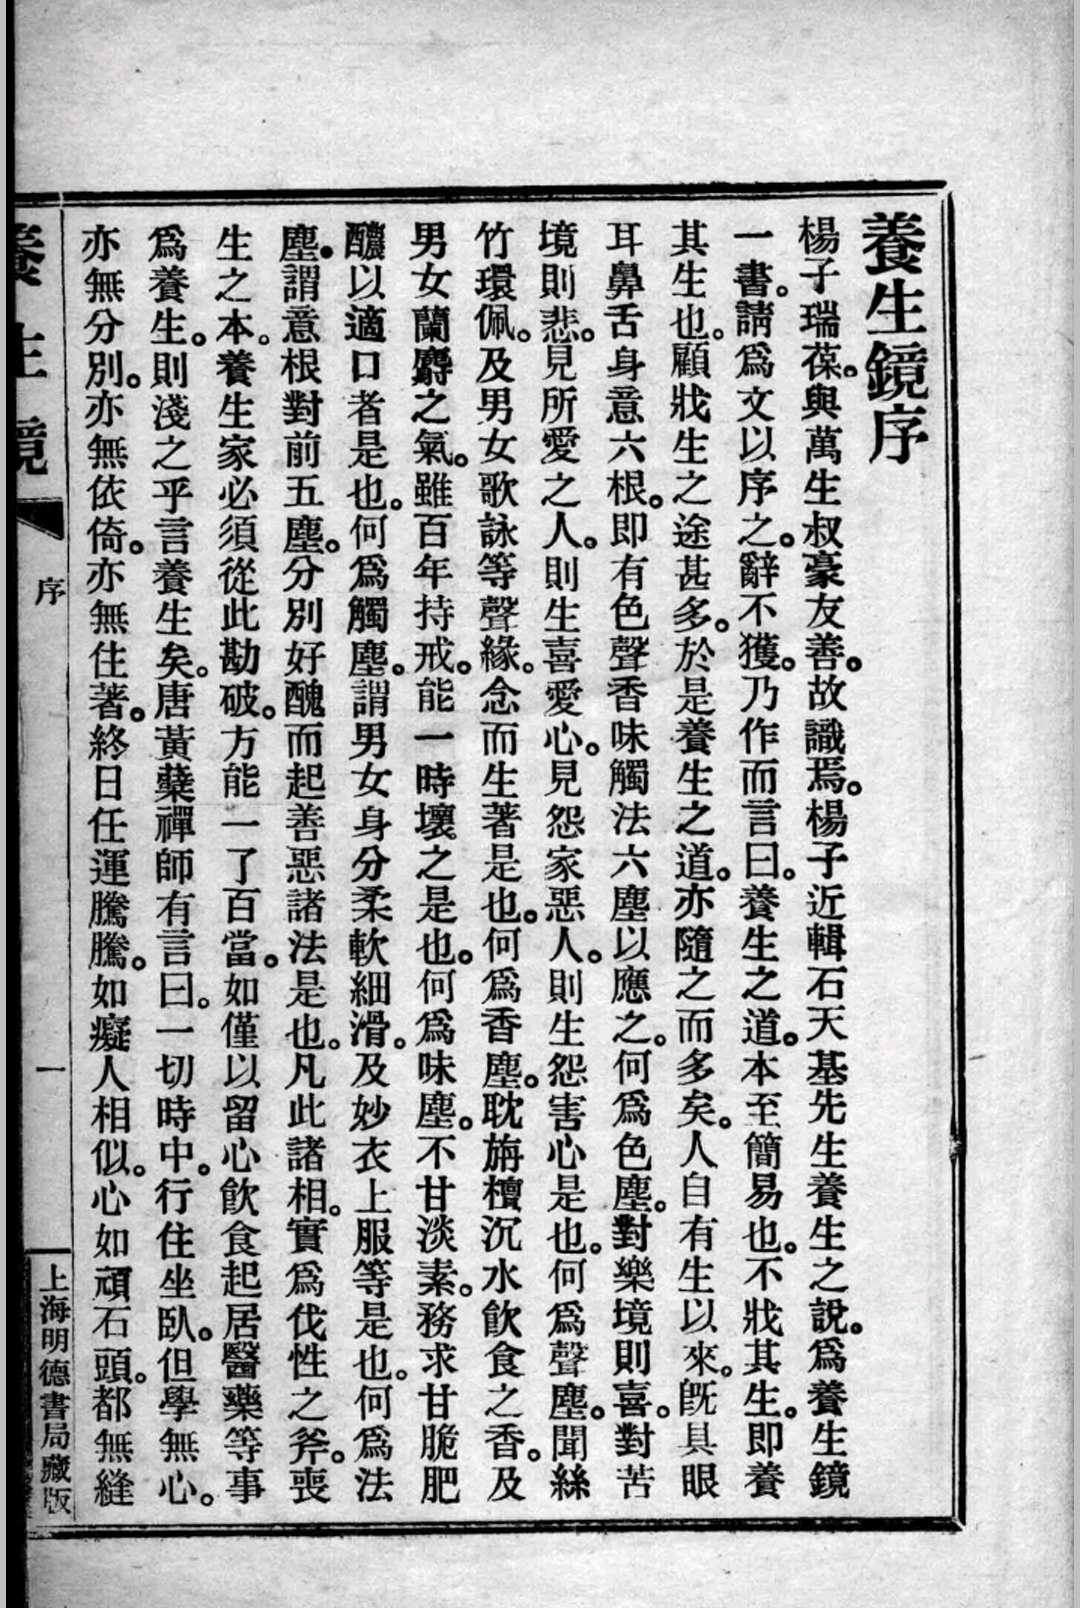 養生鏡序
楊子瑞葆。與萬生叔豪友善。故識焉。楊子近輯石天基先生養生之說。爲養生鏡
一書。請爲文以序之。辭不獲。乃作而言曰。養生之道。本至簡易也。不戕其生。即養
其生也。顧戕生之途甚多。於是養生之道。亦隨之而多矣。人自有生以來。旣具眼
耳鼻舌身意六根。即有色聲香味觸法六塵以應之。何爲色塵。對樂境則喜。對苦
境則悲。見所愛之人。則生喜愛心。見怨家惡人。則生怨害心是也。何爲聲塵。聞絲
竹環佩。及男女歌詠等聲緣。念而生著是也。何爲香塵。耽旃檀沉水飮食之香。及
男女蘭麝之氣。雖百年持戒。能一時壞之是也。何爲味塵。不甘淡素。務求甘脆肥
醲以適口者是也。何爲觸塵。謂男女身分柔軟細滑。及妙衣上服等是也。何爲法
塵。謂意根對前五塵。分別好醜而起善惡諸法是也。凡此諸相。實爲伐性之斧。喪
生之本。養生家必須從此勘破。方能一了百當。如僅以留心飮食起居醫藥等事
爲養生。則淺之乎言養生矣。唐黃蘗禪師有言曰。一切時中。行住坐臥。但學無心。
亦無分別。亦無依倚。亦無住著。終日任運騰騰。如癡人相似。心如頑石頭。都無縫
養生鏡
序
一
上海明德書局藏版